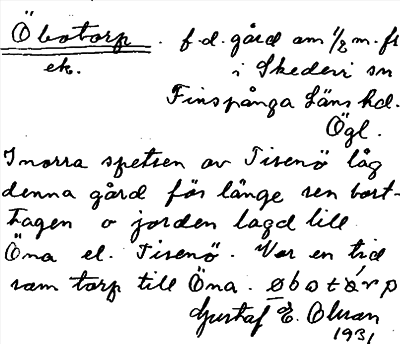 Öbotorp. f.d. gård om 1/2 m. fr
ek. i Skedevi sn
Finspånga läns hd.
Ögl.
I norra spetsen av Tisenö låg
denna gård för länge sen bort-
tagen o jorden lagd till
Öna el. Tisenö. Var en tid
som torp till Öna. øbotårp
Gustaf E. Olsson
1931